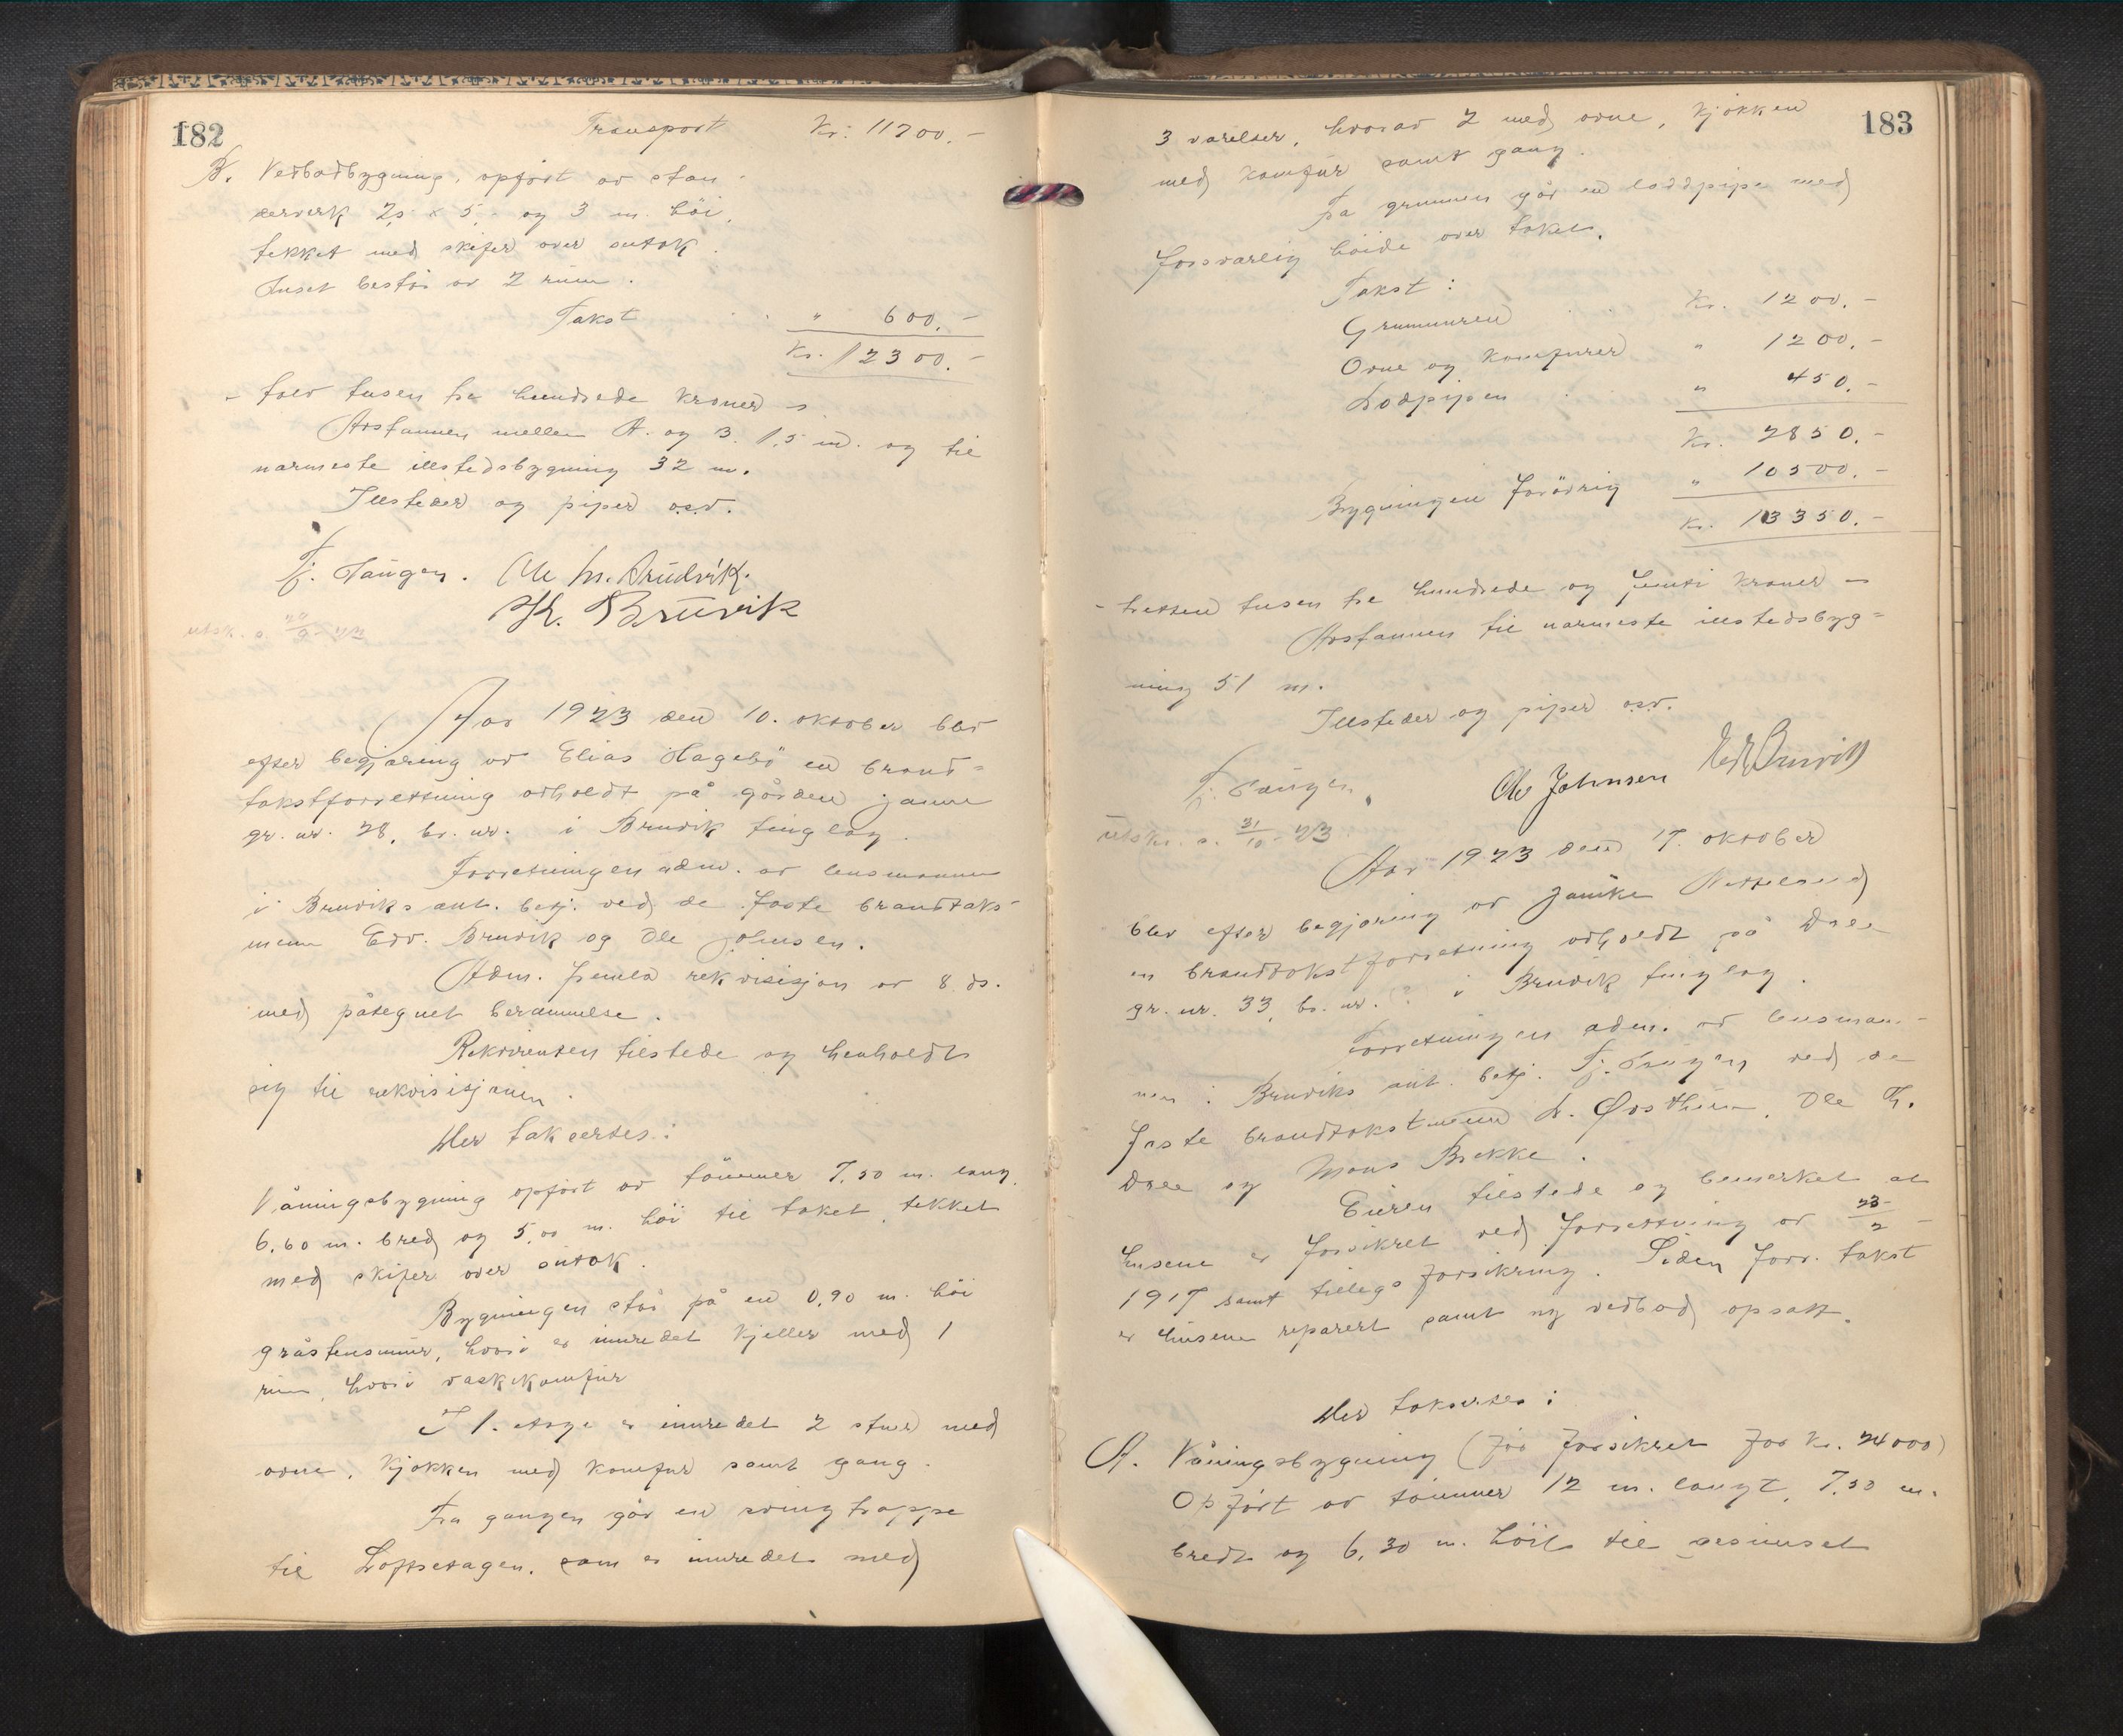 182
Transport Kr. 11700.-
B. Vedbodbygning, opført av stan-
derverk 7,5 x 5,- og 3 m. höi,
tekket med skifer over sutak.
Huset består av 2 rum.
Takst " 600.-
Kr. 12300.-
- tolv tusen tre hundrede kroner -
Avstannen mellem A. og B. 1,5 m. og til
nærmeste illstedsbygning 32 m.
Illsteder og piper osv.
Tj. Taugen. Ole M. Bruvik.
Bruvik
utsk. s.
Aar 1923 den 10. oktober blev
efter begjæring av Elias Hagebö en brand-
takstforretning avholdt på gården
gr. nr. 28, br. nr. i Bruvik tinglag.
Forretningen adm. av lensmannen
i Bruviks aut. betj. ved de faste brandtakst-
menn Edv. Bruvik og Ole Johnsen.
Adm. fremla rekvisisjon av 8. ds.
med påtegnet berammelse.
Rekvirenten tilstede og henholdt
sig til rekvisisjonen.
Der takseres:
Våningsbygning opført av tömmer 7,50 m. lang,
6,60 m. bred og 5,00 m. höi til taket, tekket
med skifer over sutak.
Bygningen står på en 0,90 m. höi
gråstensmur, hvori er innredet kjeller med 1
rum, hvori vaskekomfur
I 1. etage er innredet 2 stuer med
ovne, kjøkken med komfur samt gang.
Fra gangen går en svingtrappe
til Loftsetagen, som er innredet med
183
3 værelser, hvorav 2 med ovne, kjøkken
med komfur samt gang.
Fra grunnen går en loddpipe med
forsvarlig höide over taket.
Takst:
Grunmuren Kr. 1200.-
Ovne og komfurer " 1200.-
Lodpipen " 450.-
Kr. 2850.-
Bygningen forövrig " 10500.-
Kr. 13350.-
- tretten tusen tre hundrede og femti kroner -
Avstannen til nærmeste illstedsbyg-
ning 51 m.
Illsteder og piper osv.
Tj. Taugen. Ole Johnsen Edv Bruvik
utskr. s. 31/10-23.
Aar 1923 den 17. oktober
blev efter begjæring av Janike
en brandtakstforretning avholdt på Dale
gr. nr. 33, br. nr. i Bruvik tinglag.
Forretningen adm. av lensman-
nen i Bruviks aut. betj. Tj. Taugen ved de
faste brandtakstmenn L. Øvsthun, Ole Th.
Dale og Mons Brekke.
Eieren tilstede og bemerket at
husene er forsikret ved forretning av 23/2-
1917 samt tillegsforsikring. Siden forr. takst
er husene reparert samt ny vedbod opsatt.
Der takseres:
A. Våningsbygning (før forsikret for kr. 24000)
Opført av tömmer 12 m. langt, 7,50 m.
bredt og 6,30 m. höit til gesimset